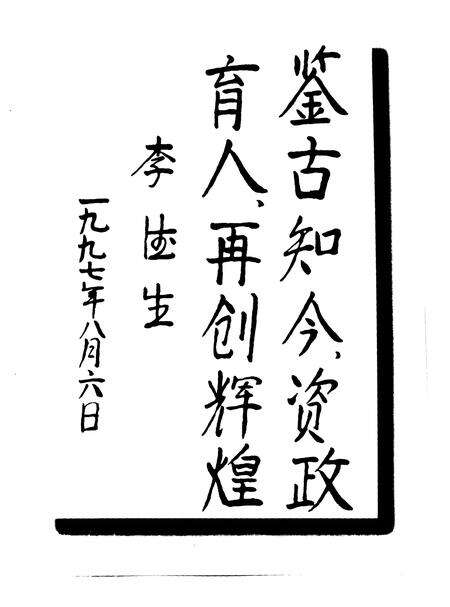 鉴古知今、资政
育人、再创辉煌
李德生
一九九七年八月六日